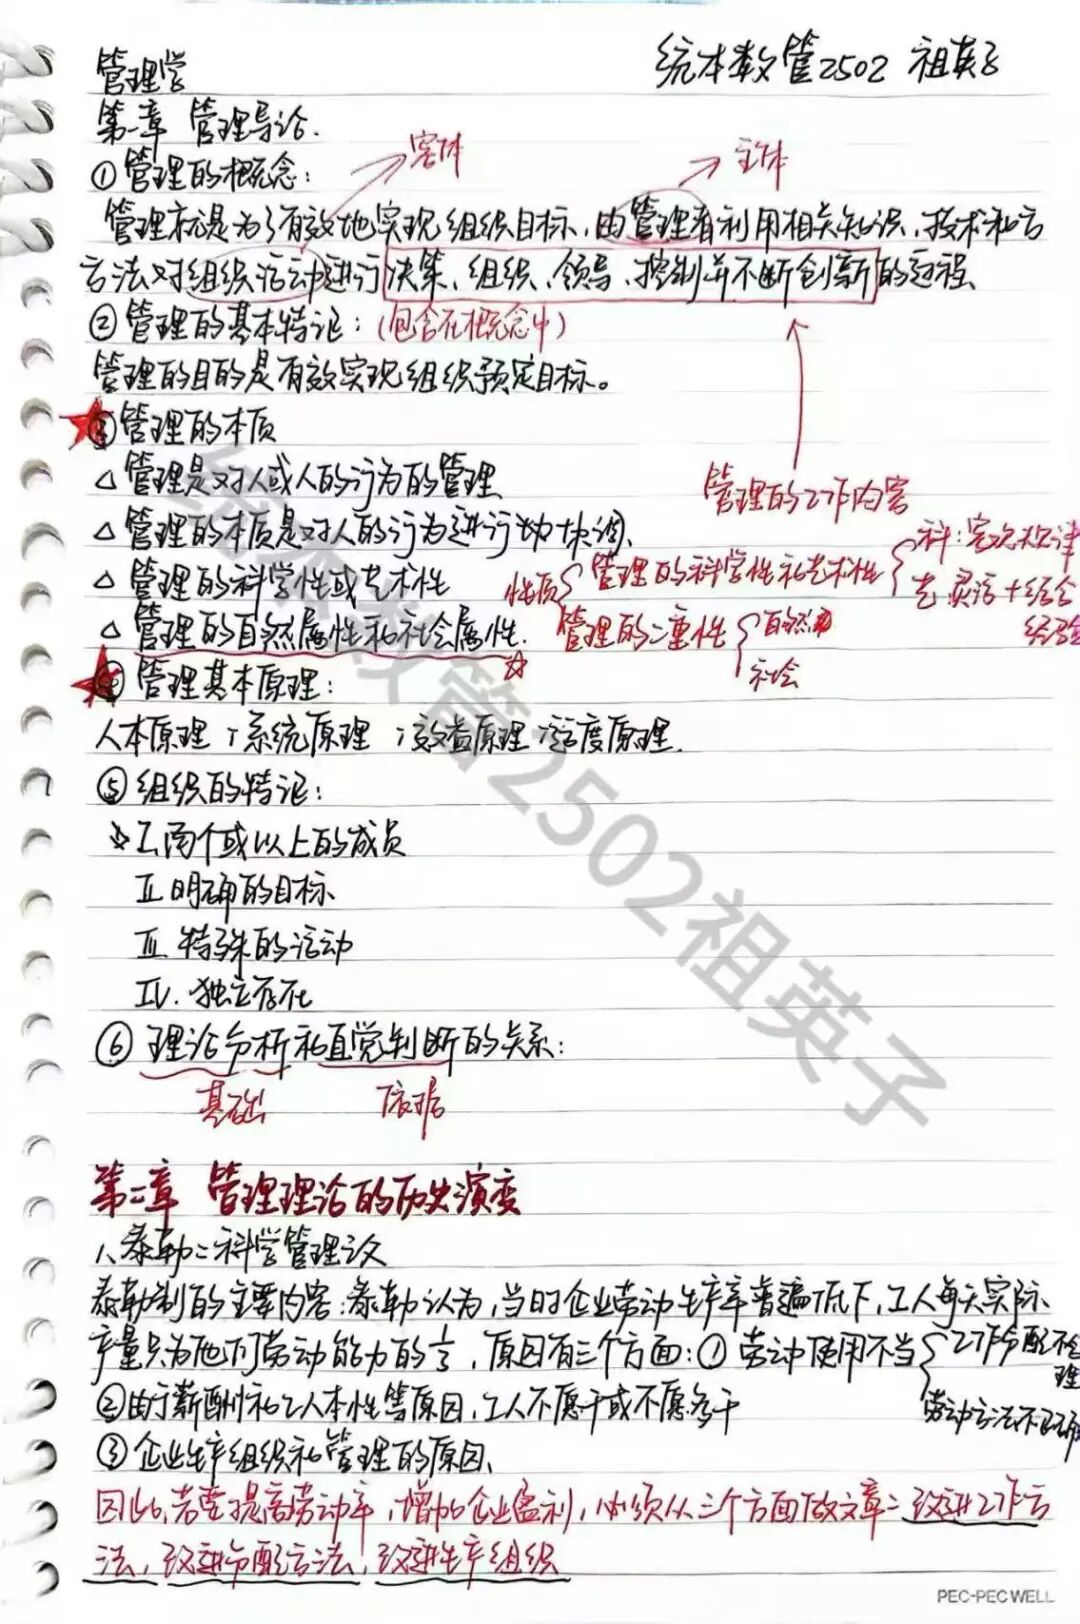 统本数管2502 祖英子
管理学
第一章 管理导论.
客体 主体
①管理的概念:
管理就是为了有效地实现组织目标,由管理者利用相关知识,技术和方
方法对组织活动进行决策、组织、领导、控制并不断创新的过程.
②管理的基本特征:(包含在概念中)
管理的目的是有效实现组织预定目标。
③管理的本质
△管理是对人或人的行为的管理
管理的工作内容
△管理的本质是对人的行为进行协调.
科:客观规律
△管理的科学性或艺术性 性质 管理的科学性和艺术性
艺 灵活+结合
经验
△管理的自然属性和社会属性. 管理的二重性 自然
社会
④管理基本原理:
人本原理;系统原理;效益原理;适度原理.
⑤组织的特征:
☆Ⅰ.两个或以上的成员
Ⅱ.明确的目标
Ⅲ.特殊的活动
Ⅳ.独立存在
⑥理论分析和直觉判断的关系:
基础 依据
第二章 管理理论的历史演变
1、泰勒:科学管理
泰勒制的主要内容:泰勒认为,当时企业劳动生产率普遍低下,工人每天实际
产量只为他们劳动能力的⅓,原因有三个方面:①劳动使用不当 工作分配不合
理
劳动方法不正确
②由于薪酬和工人本性等原因,工人不愿干或不愿多干
③企业生产组织和管理的原因.
因此,若要提高劳动率,增加企业盈利,必须从三个方面做文章:改进工作方
法,改进分配方法,改进生产组织
PEC-PECWELL
统本数管2502祖英子